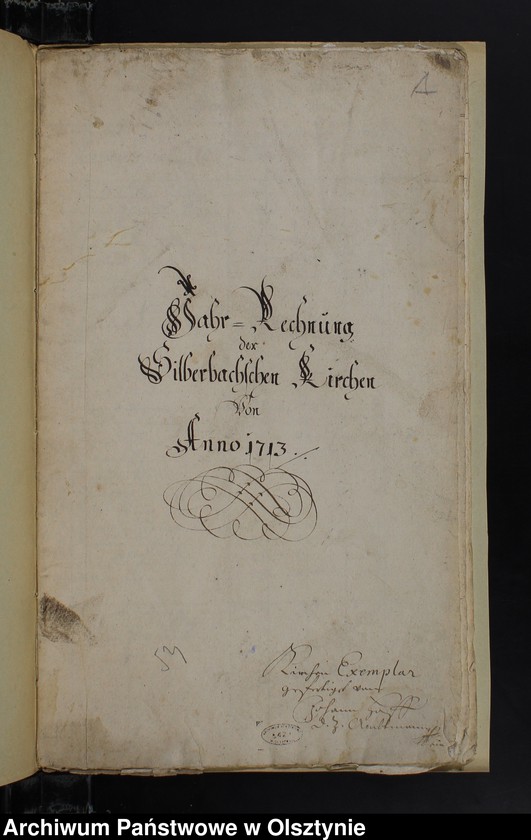 1
Jahr=Rechnung
der
Silberbachschen Kirchen
Von
Anno 1713.
Kirchen Exemplar
gefertiget von
Johann
Archiwum Państwowe w Olsztynie